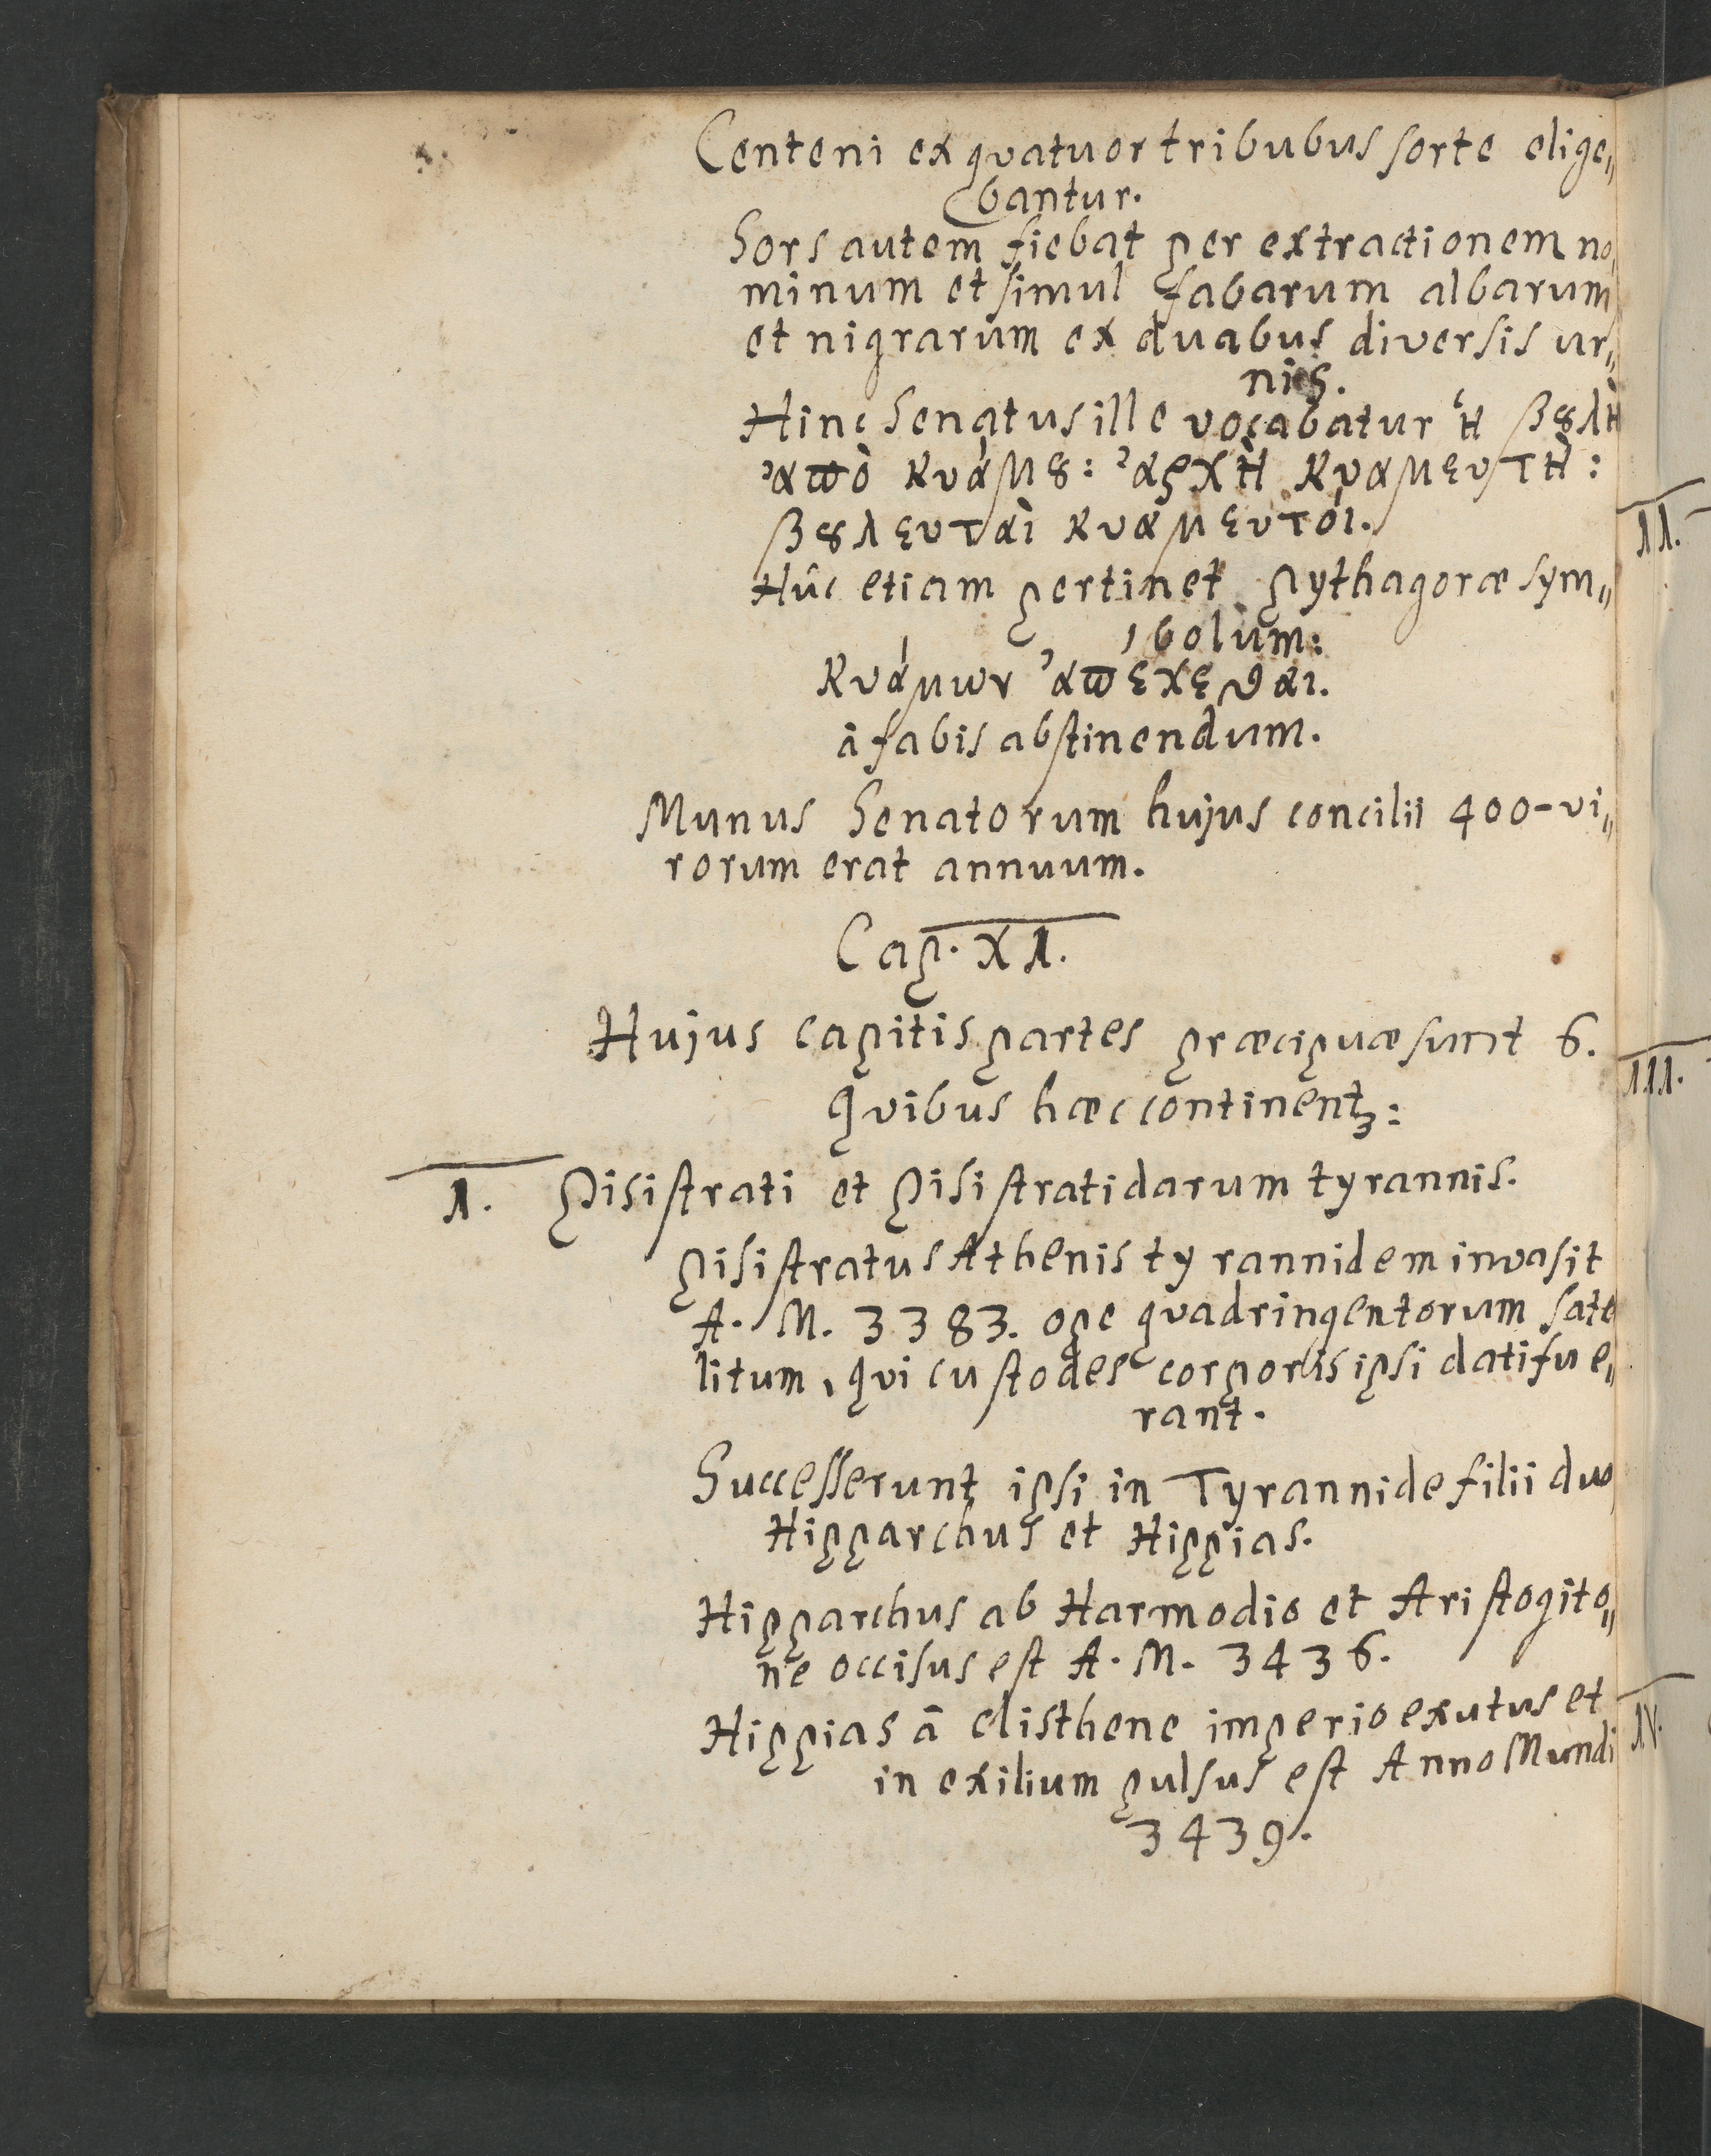 Centeni ex quatuor tribubus sorte elige„
bantur.
Sors autem fiebat per extractionem no„
minum et simul fabarum albarum
et nigrarum ex duabus diversis ur„
nis.
Hinc Senatus ille vocabatur ἡ βȣλὴ
ἀπὸ κυάμȣ: ἀρχὴ κυαμευτὴ:
βȣλευταὶ κυαμευτόι.
Hûc etiam pertinet Pythagoræ sym„
bolum:
κυάμων ἀπέχεϑαι.
â fabis abstinendum.
Munus Senatorum hujus concilii 400-vi„
rorum erat annuum.
Cap. XI.
Hujus capitis partes præcipuæ sunt 6.
Quibus hæc continentꝫ:
I. Pisistrati et Pisistratidarum tyrannis.
Pisistratus Athenis tyrannidem invasit
A. M. 3383. ope quadringentorum sate
litum, qui custodes corporis ipsi dati fue„
rant.
Successerunt ipsi in Tyrannide filii duo
Hipparchus et Hippias.
Hipparchus ab Harmodio et Aristogito„
ne occisus est A. M. 3436.
Hippias â Clisthene imperio exutus et
in exilium pulsus est Anno Mundi
3439.
II.
III.
IV.